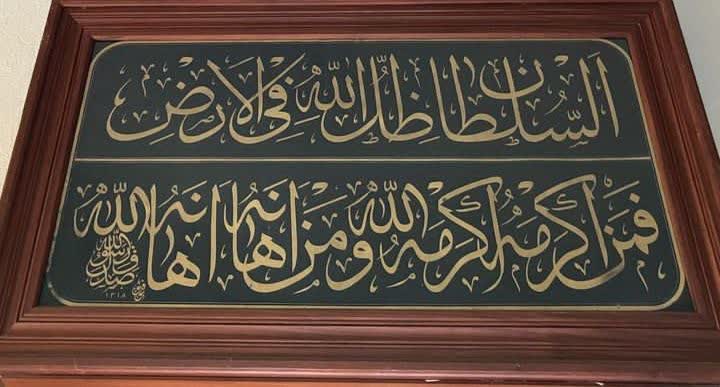 السلطان ظل الله في الأرض
فمن اكرمه اكرمه الله ومن اهانه اهانه الله
صدق رسول الله
١٣١٨